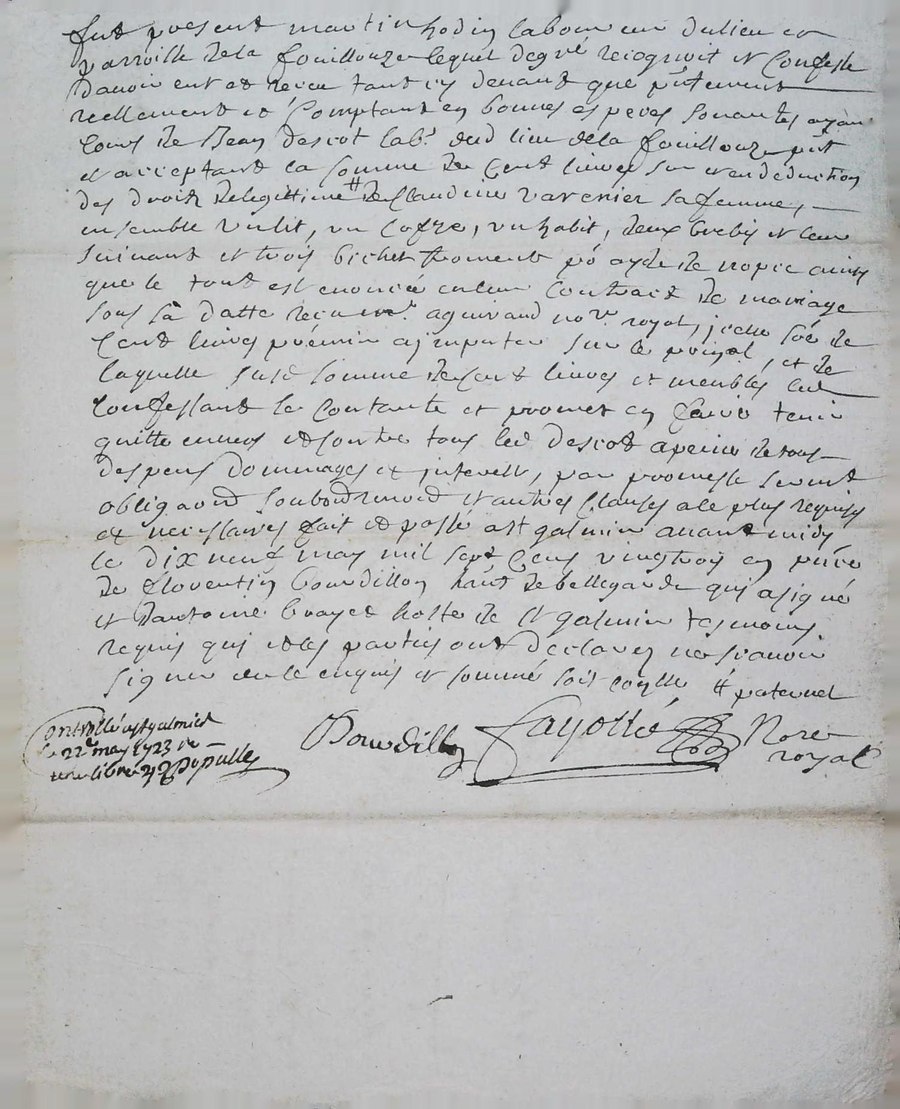 fut présent martin hodin laboureur du lieu et
parroisse de la fouillouze lequel de gré recognoit et Confesse
davoir eut et receu tant cy devant que pntement
reellement et Comptant en bonnes especes sonantes ayan
Cours de Jean descot labr dud lieu de la fouillouze pnt
et acceptant la somme de Cent livres sur et en deduction
des droits de legittime # de Claudine varenier sa femme, —
ensemble un lit, un Cofre, un habit, deux brebis et leur
suivant et trois bichet froment po ayde de nopce ainsy
que le tout est enoncée en leur Contract de mariage
sous sa datte receu me aguiraud nore royal, jcelle soe de
Cent livres premier a jmputer sur le prinpal, et de
laquelle susd somme de Cent livres et meubles led
Confessant se Contante et promet en faire tenir
quitte envers et contre tous led descot a peine de tous
despens dommages et jnterests, par promesse serment
obligaons soubmons et autres Clauses a le plus requises
et necessaires fait et passé a st galmier avant midy
le dix neuf may mil sept Cens vingt trois en pnce
de florentin bourdillon hant de bellegarde qui a signé
et dantoine brayet hoste de st galmier tesmoins
requis qui et les parties ont declarez ne scavoir
signer de le enquis et sommé sois coylle # paternel
Controllé a st galmier
le 22e may 1723 re
Bourdillon
Fayolle
Nore
royal